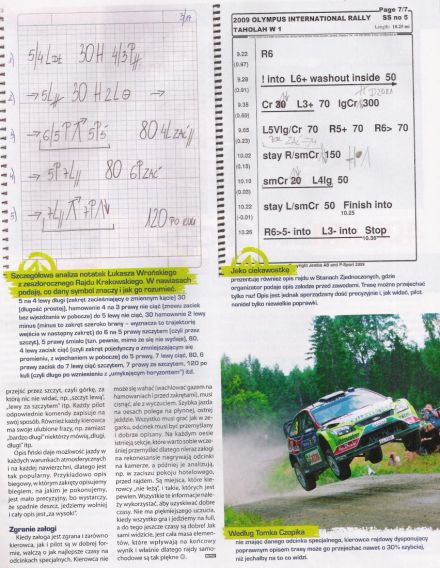 3/A
1) 5/4 LDŁ 30H 4/3P//
2) → 5L// 30 H2L⊖ →
3) 80 4L ZAĆ
4) 80 6P ZAĆ
5) 120 PO KULI
Szczegółowa analiza notatek Łukasza Wrońskiego
z zeszłorocznego Rajdu Krakowskiego. W nawiasach
podaję, co dany symbol znaczy i jak go rozumieć.
5 na 4 lewy długi (zakręt zacieśniający o zmiennym kącie) 30
(długość prostej), hamowanie 4 na 3 prawy nie ciąć (znowu zaciek
bez wjeżdżania w pobocze) do 5 lewy nie ciąć, 30 hamowanie 2 lewy
minus (minus to zakręt szeroko brany – wyznacza to trajektorię
wejścia w następny zakręt) do 6 na 5 prawy szczytem (czyli przez
szczyt), 5 prawy śmiało (tzn. pewnie, mimo że się nie wydaje), 80,
4 lewy zaciak ciąć (czyli zakręt pojedynczy o zmniejszającym się
promieniu, z wjechaniem w pobocze) do 5 prawy, 7 lewy ciąć, 80, 6
prawy zaciak do 7 lewy ciąć szczytem, 7 prawy za szczytem, 120 po
kuli (czyli długo po wzniesieniu z „umykającym horyzontem”) itd.
przejść przez szczyt, czyli górkę, za
którą nic nie widać, np. „szczyt lewą”,
„lewy za szczytem” itp. Każdy pilot
odpowiednie komendy zapisuje na
swój sposób. Również każdy kierowca
ma swoje ulubione frazy, np. zamiast
„bardzo długi” niektórzy mówią „długi,
długi” itp.
Opis fiński daje możliwość jazdy w
każdych warunkach atmosferycznych
i na każdej nawierzchni, dlatego jest
tak popularny. Przykładowo opis
biegowy, w którym zakręty opisujemy
biegiem, na jakim je pokonujemy,
jest mało precyzyjny, bo wystarczy,
że spadnie deszcz, jedziemy wolniej
i cały opis jest „za wysoki”.
Zgranie załogi
Kiedy załoga jest zgrana i zarówno
kierowca, jak i pilot są w dobrej for-
mie, walczą o jak najlepsze czasy na
odcinkach specjalnych. Kierowca nie
może się wahać (wachlować gazem na
hamowaniach i przed zakrętami), musi
cisnąć, ale z wyczuciem. Szybka jazda
na osach polega na płynnej, ostrej
jeździe. Wszystko musi grać jak w ze-
garku, odcinek musi być przemyślany
i dobrze opisany. Na każdym oesie
istnieją sekcje, które warto sobie wcze-
śniej przemyśleć dlatego nieraz załogi
na rekonesansie nagrywają odcinki
na kamerze, a później je analizują,
np. w zaciszu pokoju hotelowego,
przed rajdem. Są miejsca, które kie-
rowcy „nie leżą”, i takie, których jest
pewien. Wszystkie te informacje nale-
ży wykorzystać, aby uzyskiwać dobre
czasy. Nie ma piękniejszego uczucia,
kiedy wszystko gra i jedziemy na full,
a do tego jeszcze czasy są dobre! Jak
sami widzicie, jest cała masa elemen-
tów, które wpływają na końcowy
wynik i właśnie dlatego rajdy samo-
chodowe są takie piękne
Page 7/7
2009 OLYMPUS INTERNATIONAL RALLY SS no 5
TAHOLAH W 1 Length: 10.25 mi
9.22 R6
(0.97)
9.28 ! into L6+ washout inside 50
(0.91)
9.35 Cr 30 L3+ 70 lgCr 300
(0.65)
9.65 L5Vlg/Cr 70 R5+ 70 R6> 70
(0.53)
10.02 stay R/smCr 150
(0.16)
10.10 smCr 20 L4lg 50
(0.13)
10.22 stay L/smCr 50 Finish into
(-0.01) 10.25
10.26 R6>5- into L3- into Stop
10.36
Jako ciekawostkę
prezentuję również opis rajdu w Stanach Zjednoczonych, gdzie
organizator podaje opis załodze przed zawodami. Trasę można przejechać
tylko raz! Opis jest jednak sporządzany dość precyzyjnie i, jak widać, pilot
naniósł tylko niewielkie poprawki.
Według Tomka Czopika
nie znając danego odcinka specjalnego, kierowca rajdowy dysponujący
poprawnym opisem trasy może go przejechać nawet o 30% szybciej,
niż jechałby na to co widzi.